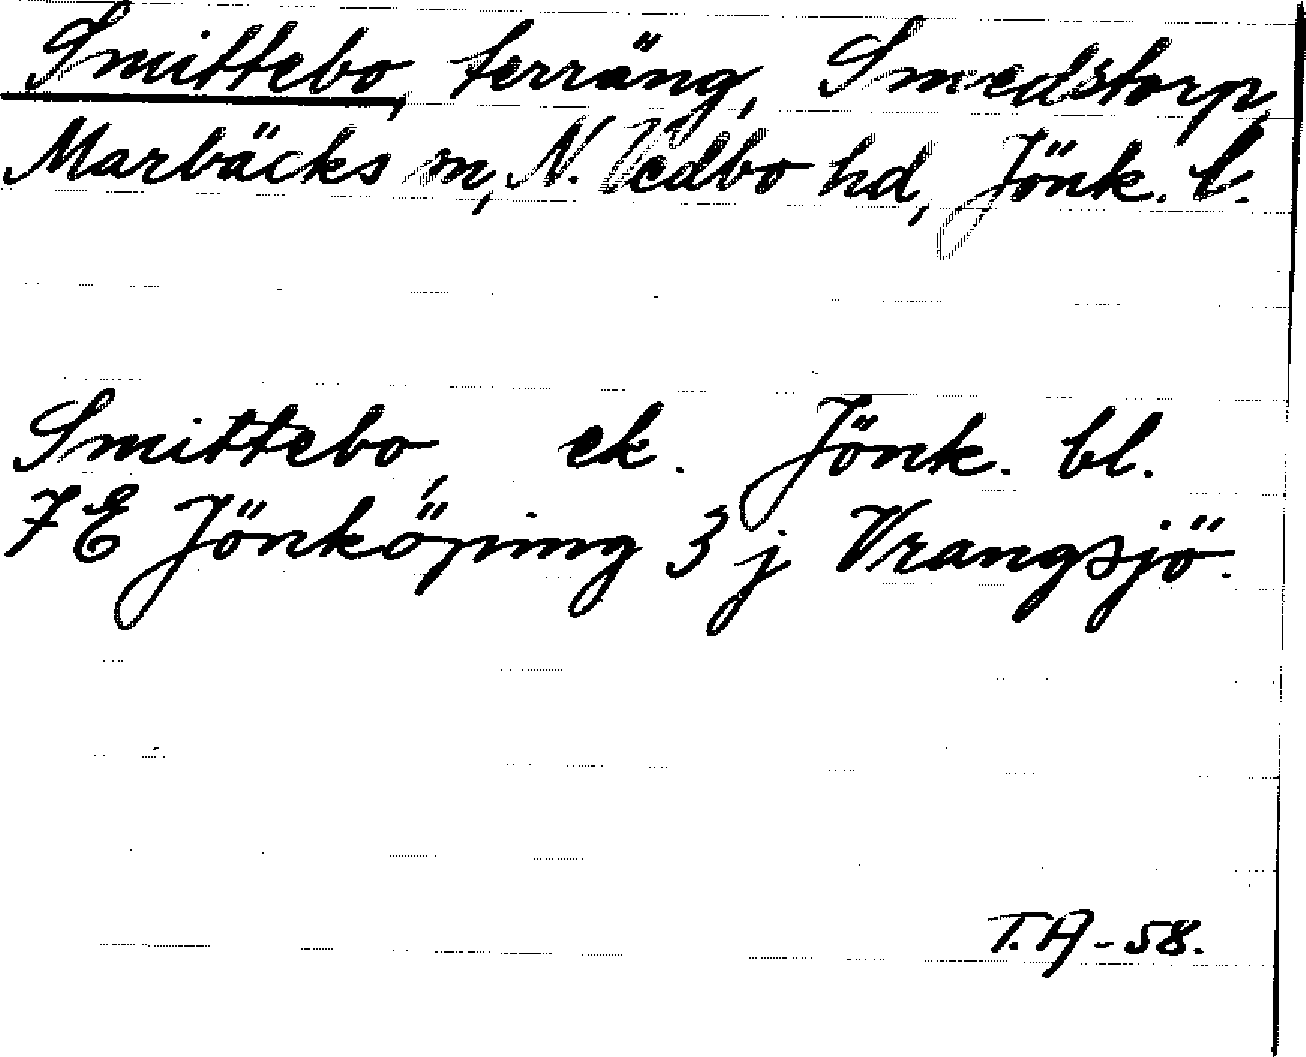 Smittebo, terräng, Smedstorp,
Marbäcks sn, N. Vedbo hd, Jönk. l.
Smittebo, ek. Jönk. bl.
7E Jönköping 3 j Vrangsjö.
T.A-58.